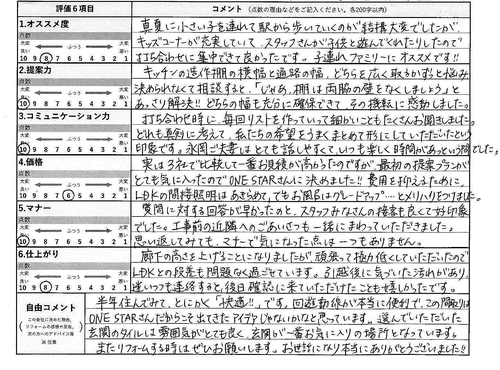 評価6項目
コメント（点数の理由などをご記入ください。各200字以内）
1.オススメ度
点数
大変良い ふつう 大変悪い
10 9 8 7 6 5 4 3 2 1
真夏に小さい子を連れて駅から歩いていくのが結構大変でしたが、
キッズコーナーが充実していて、スタッフさんが子供と遊んでくれたりしたので
打ち合わせに集中できて良かったです。子連れファミリーにオススメです!!
2.提案力
点数
大変良い ふつう 大変悪い
10 9 8 7 6 5 4 3 2 1
キッチンの造作棚の横幅と通路の幅、どちらを広く取るかずっと悩み
決められなくて相談すると、「じゃあ、棚は両脇の壁をなくしましょう」と
あっさり解決!!どちらの幅も充分に確保できて、その機転に感動しました。
3.コミュニケーション力
点数
大変良い ふつう 大変悪い
10 9 8 7 6 5 4 3 2 1
打ち合わせ時に、毎回リストを作っていって細かいこともたくさんお聞きしました。
どれも真剣に考えて、私たちの希望をうまくまとめて形にしていただいたという
印象です。永岡ご夫妻はとても話しやすくて、いつも楽しく時間があっという間でした。
4.価格
点数
大変良い ふつう 大変悪い
10 9 8 7 6 5 4 3 2 1
実は3社で比較して一番お見積が高かったのですが、最初の提案プランが
とても気に入ったのでONE STARさんに決めました!!費用を抑えるために、
LDKの間接照明はあきらめて、でもお風呂はグレードアップ…とメリハリをつけました。
5.マナー
点数
大変良い ふつう 大変悪い
10 9 8 7 6 5 4 3 2 1
質問に対する回答が早かったのと、スタッフみなさんの接客も良くて好印象
でした。工事前の近隣へのごあいさつも一緒にまわっていただきました。
思い返してみても、マナーで気になった点は一つもありません。
6.仕上がり
点数
大変良い ふつう 大変悪い
10 9 8 7 6 5 4 3 2 1
廊下の高さを上げることになりましたが、頑張って極力低くしていただいたので
LDKとの段差も問題なく過ごせています。引越後に気づいた汚れがあり、
遅いつも連絡すると、後日確認に来ていただけたことも嬉しかったです。
自由コメント
この会社に決めた理由、
リフォームの感想や反省、
次の方へのアドバイス等
※任意
半年住んでみて、とにかく「快適!!」です。回遊動線が本当に便利で、この間取りは
ONE STARさんだからこそ出てきたアイデアじゃないかなと思っています。選んでいただいた
玄関のタイルは雰囲気がとても良く、玄関が一番お気に入りの場所となっています。
またリフォームする時はぜひお願いします。お世話になり本当にありがとうございました!!